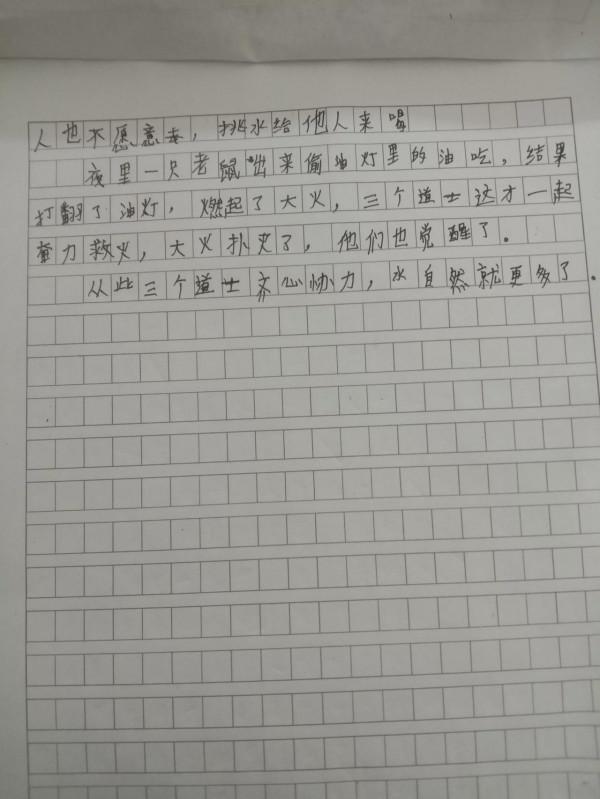 人也不愿意去，挑水给他人来喝
夜里一只老鼠出来偷油灯里的油吃，结果
打翻了油灯，燃起了大火，三个道士这才一起
奋力救火，大火扑灭了，他们也觉醒了．
从此三个道士齐心协力，水自然就更多了．